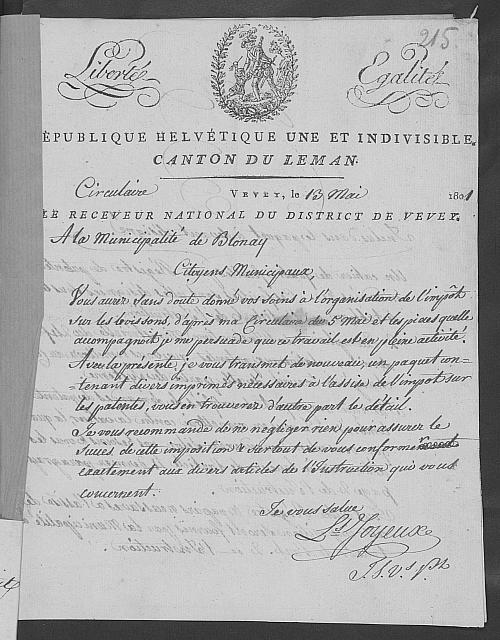 215.
Liberté
Egalité
RÉPUBLIQUE HELVÉTIQUE UNE ET INDIVISIBLE.
CANTON DU LEMAN.
Circulaire VEVEY, le 13 Mai 1801
LE RECEVEUR NATIONAL DU DISTRICT DE VEVEY.
A la Municipalité de Blonay
Citoyens Municipaux,
Vous aurez sans doute donné vos soins à l'organisation de l'impôt
sur les boissons, d'après ma Circulaire du 5 Mai et les pieces quelle
acompagnoit, je me persuade que ce travail est en pleine activité.
Avec la présente, je vous transmet de nouveau, un paquet con-
tenant divers imprimés nécessaires à l'assise de l'impot sur
les patentes, vous en trouverez d'autre part le détail.
Je vous recommande de ne négliger rien pour assurer le
succes de cette imposition & surtout de vous conformer
exactement aux divers articles de l'Instruction qui vous
concernent.
Je vous salue
Ls Joyeux
T.S.V.s.p.